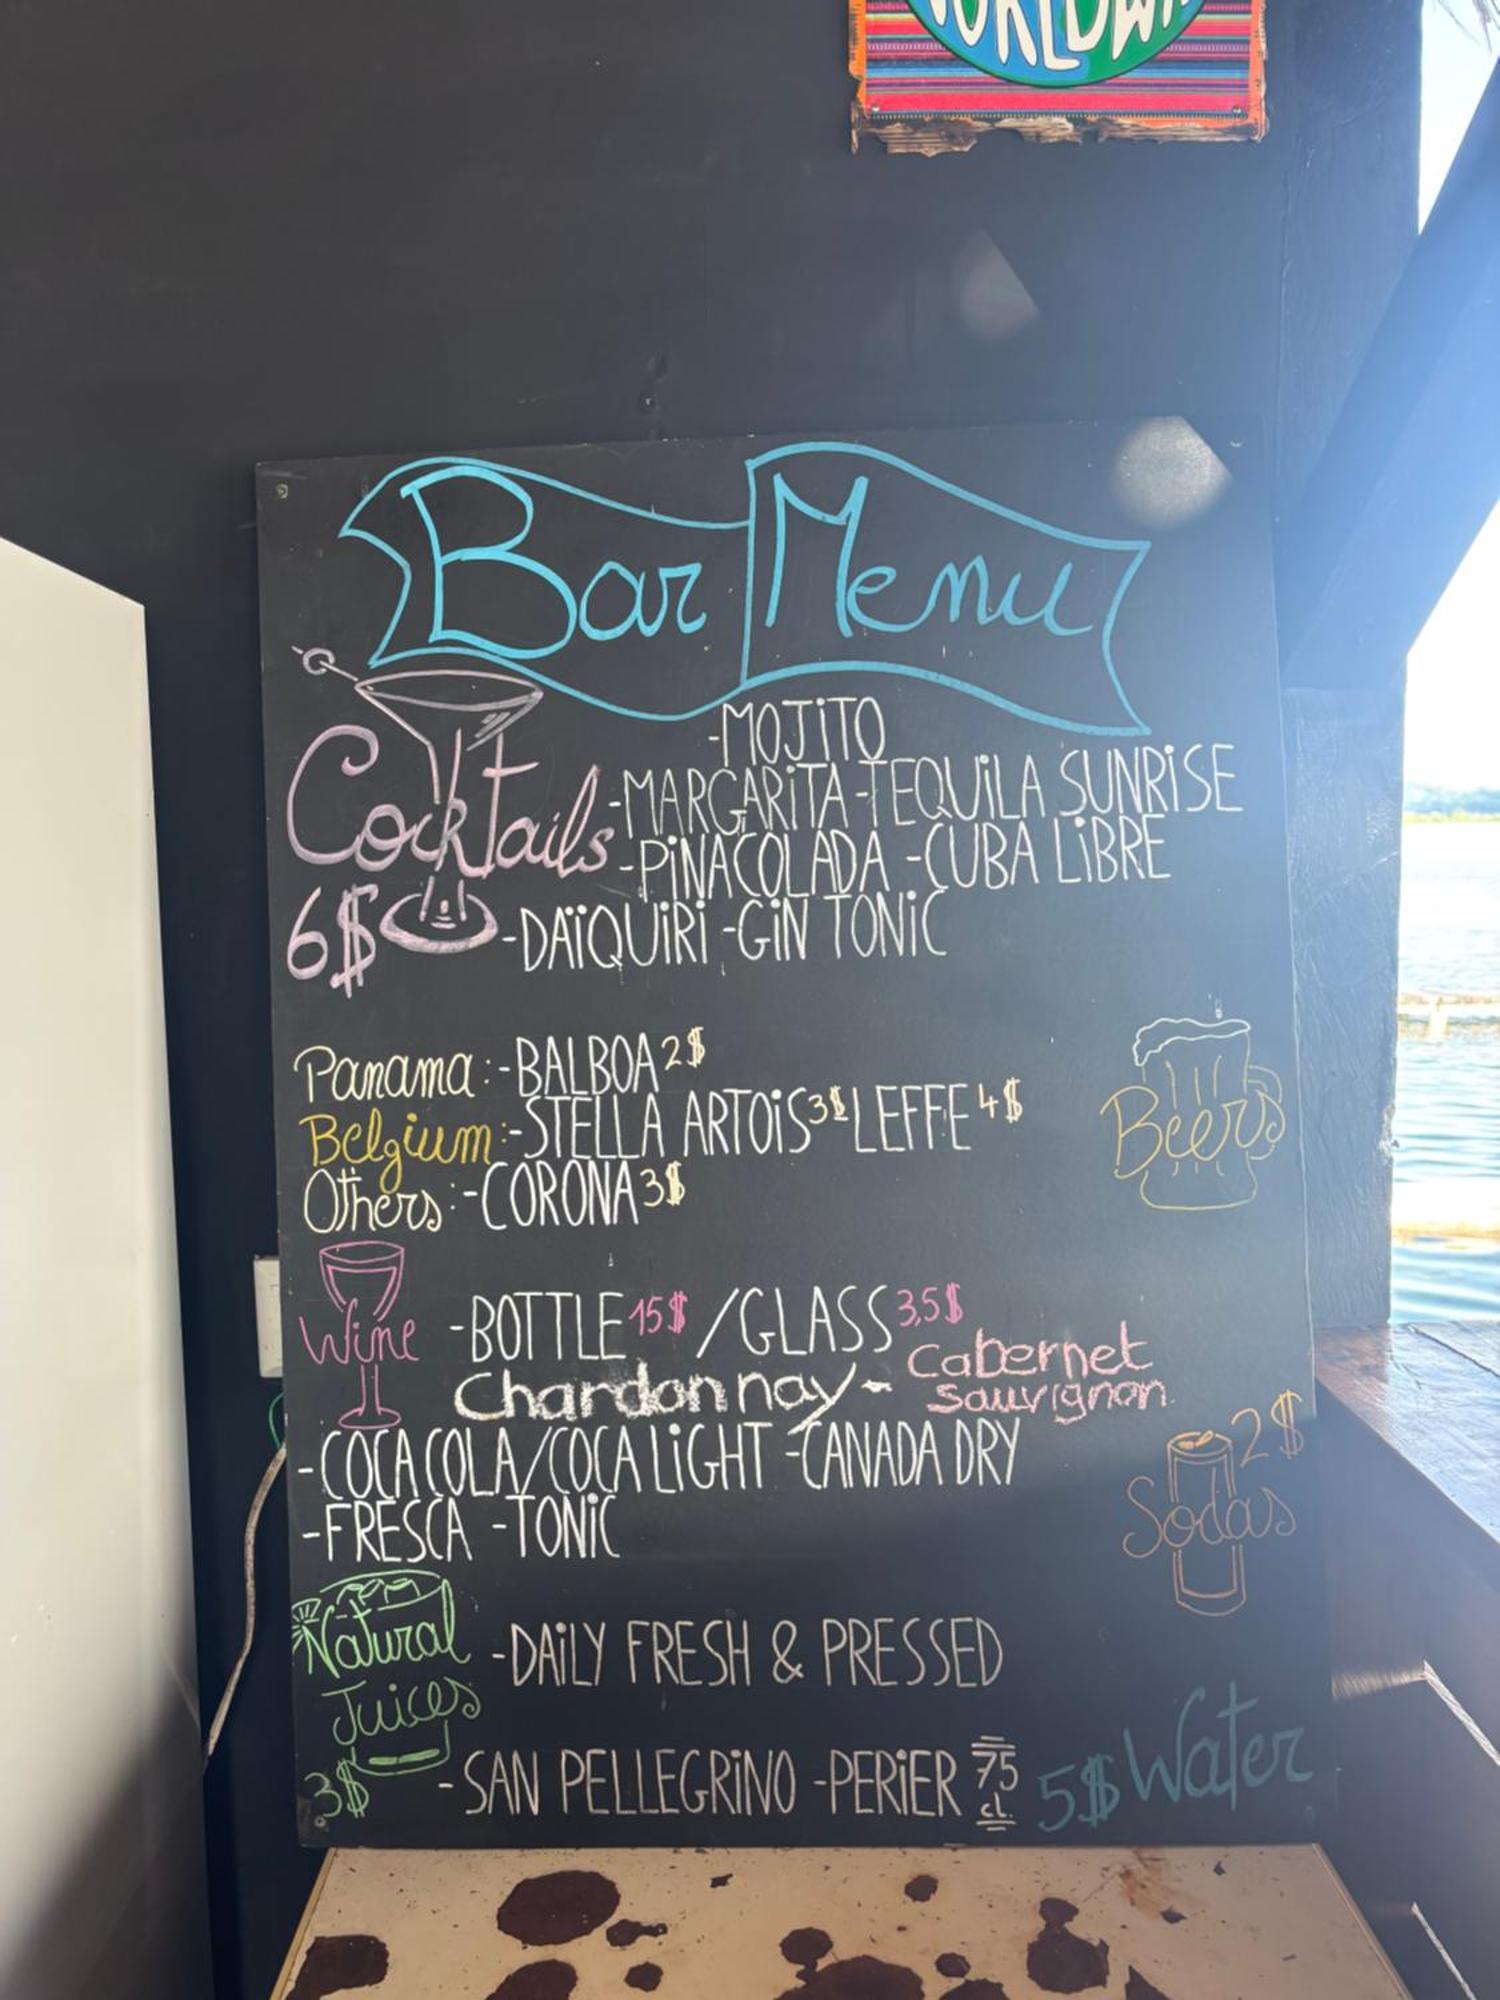 WORLDWI
Bar Menu
Cocktails
6$
-MOJiTO
-MARGARiTA -TEQUiLA SUNRiSE
-PiNACOLADA -CUBA LiBRE
-DAÏQUiRi -GiN TONiC
Panama: -BALBOA 2$
Belgium: -STELLA ARTOiS 3$ LEFFE 4$
Others: -CORONA 3$
Beers
Wine -BOTTLE 15$ /GLASS 3,5$
Chardonnay - Cabernet
sauvignon.
-COCA COLA/COCA LiGHT -CANADA DRY
-FRESCA -TONiC
2$
Sodas
Natural
Juices
3$
-DAiLY FRESH & PRESSED
-SAN PELLEGRiNO -PERiER 75
cl.
5$ Water